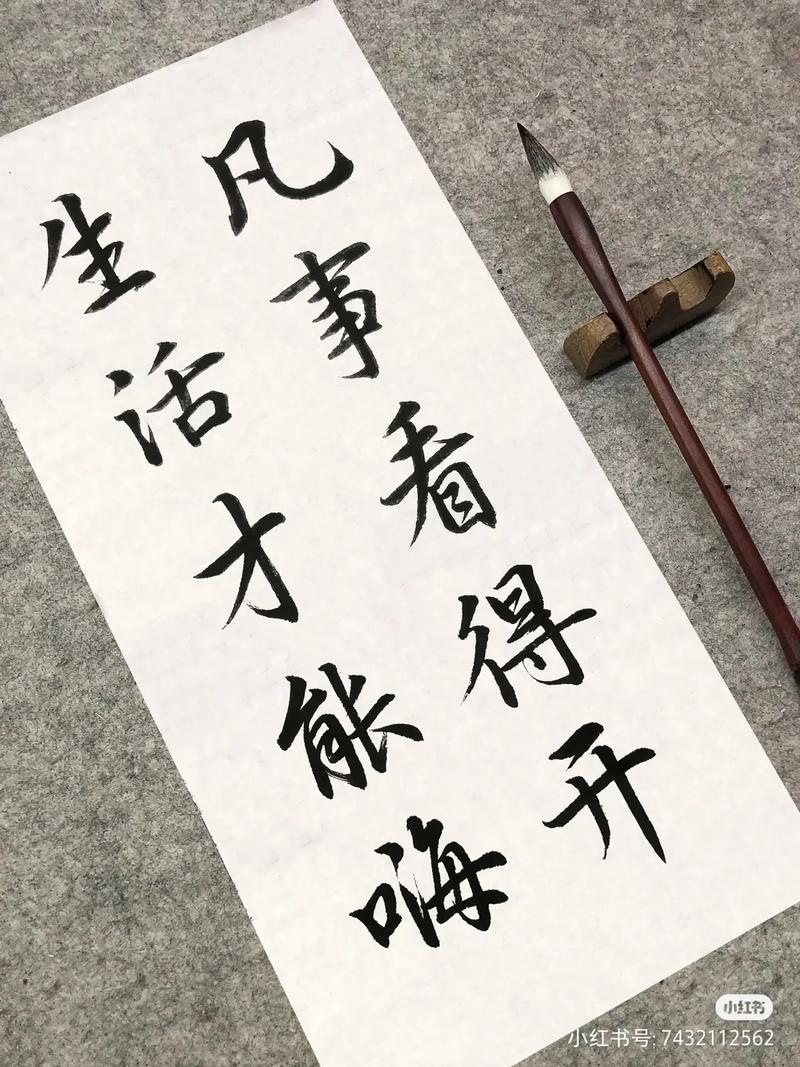 凡事看得开
生活才能嗨
小红书
小红书号: 7432112562